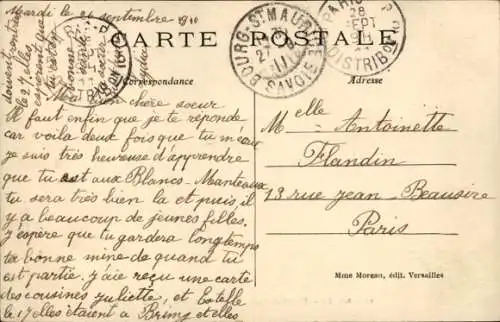 Mardi le 26 septembre 1911
CARTE POSTALE
Correspondance
Adresse
BOURG-St MAURICE
SAVOIE
PARIS
DISTRIBON
Ma bien chère soeur
Il faut enfin que je te réponde
car voile deux fois que tu m'écris
je suis très heureuse d'apprendre
que tu est aux Blancs-Manteaux
tu sera très bien la et puis il
y a beaucoup de jeunes filles.
J'espère que tu gardera longtemps
ta bonne mine de quand tu
est partie. J'aie reçu une carte
des cousines Juliette, et Estelle
le 17 elles étaient à Brinz et elles
doivent rentrer
le 27 elles
espèrent que
Melle Antoinette
Flandin
13 rue Jean-Beausire
Paris
Mme Moreau, édit. Versailles